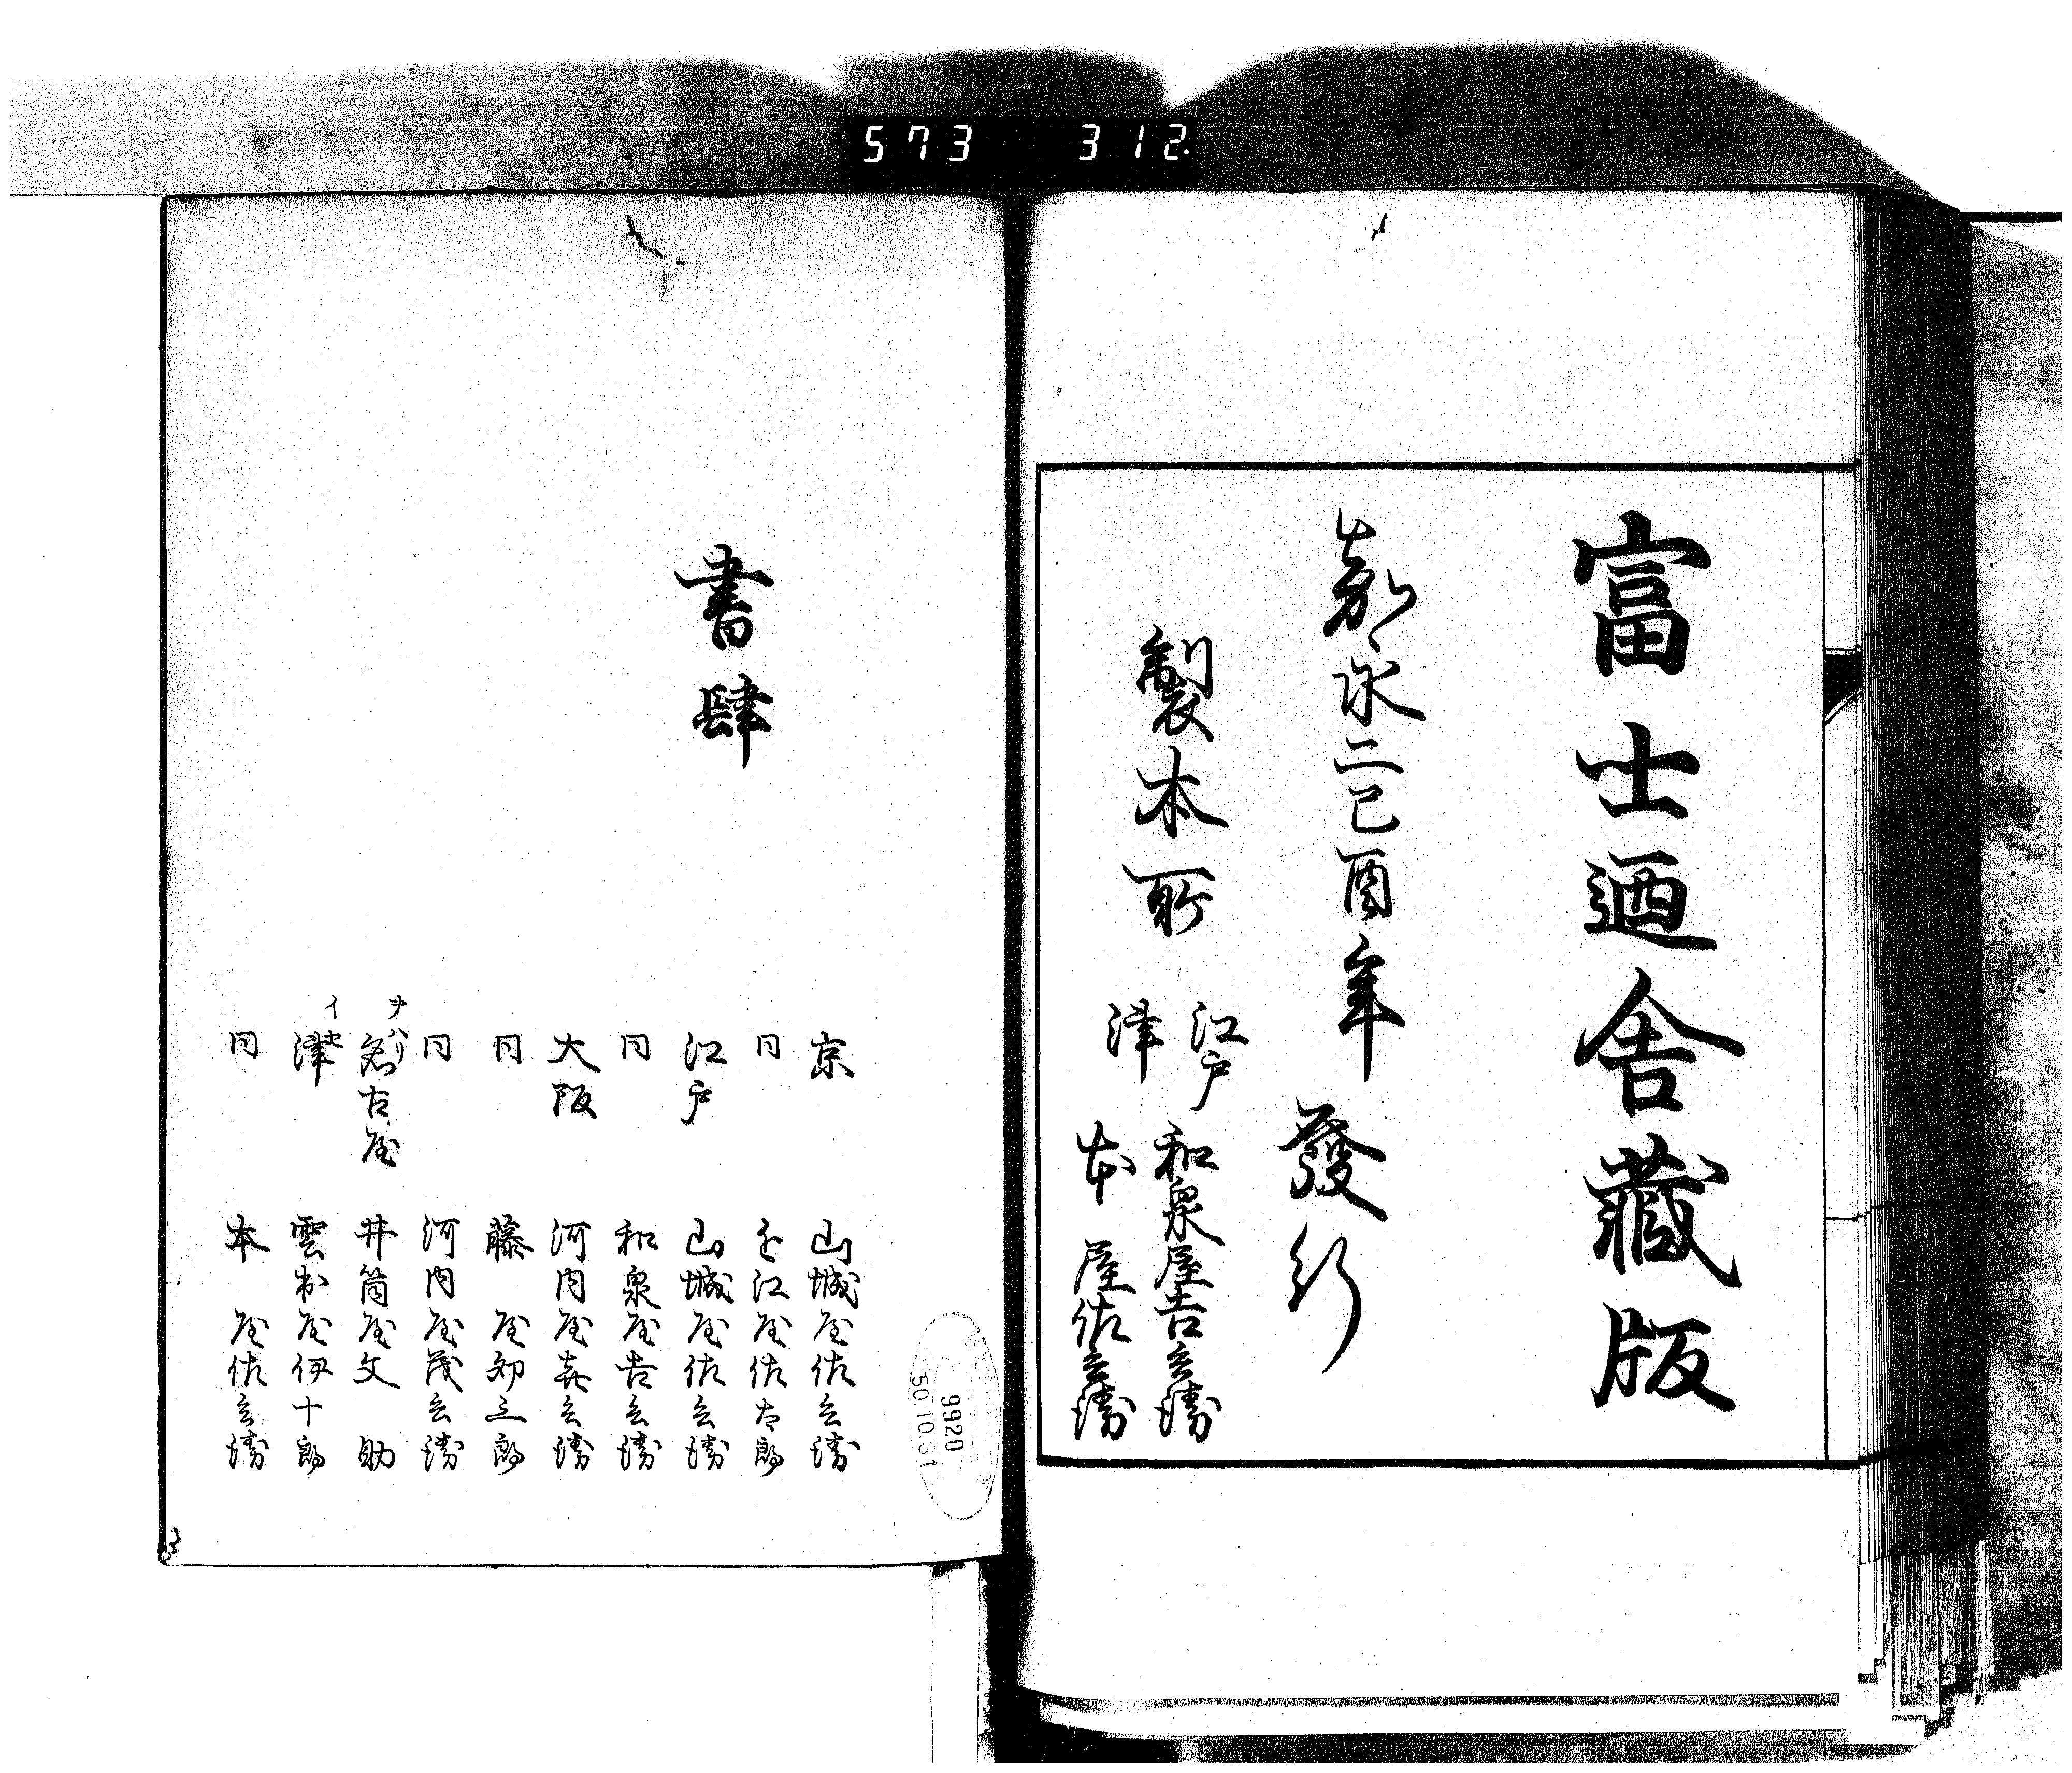 573 312
富士廼舍藏版
嘉永二己酉年發行
製本所
江戸 和泉屋吉兵衛
津 本屋佐兵衛
書肆
京 山城屋佐兵衛
同 近江屋佐太郎
江戸 山城屋佐兵衛
同 和泉屋吉兵衛
大阪 河内屋喜兵衛
同 藤屋彌三郎
同 河内屋茂兵衛
ヲハリ
名古屋 井筒屋文助
イセ
津 雲出屋伊十郎
同 本屋佐兵衛
9920
50.10.31